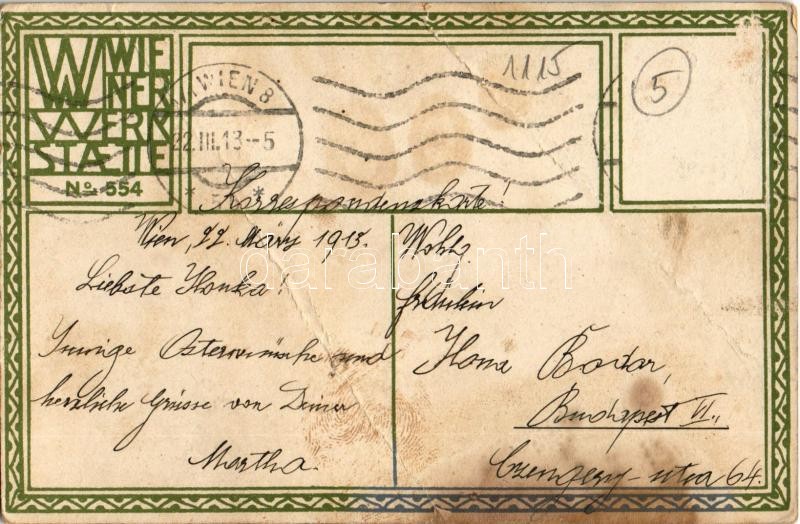 WIE
NER
WERK
STÆTTE
No 554
WIEN 8
22.III.13-5
1115
5
Korrespondenzkarte!
Wien, 22. März 1913.
Liebste Ilonka!
Innige Osterwünsche und
herzliche Grüsse von Deiner
Martha.
Wohlg.
Fräulein
Ilona Bodar,
Budapest VI.,
Czengery-utca 64.
darabanth